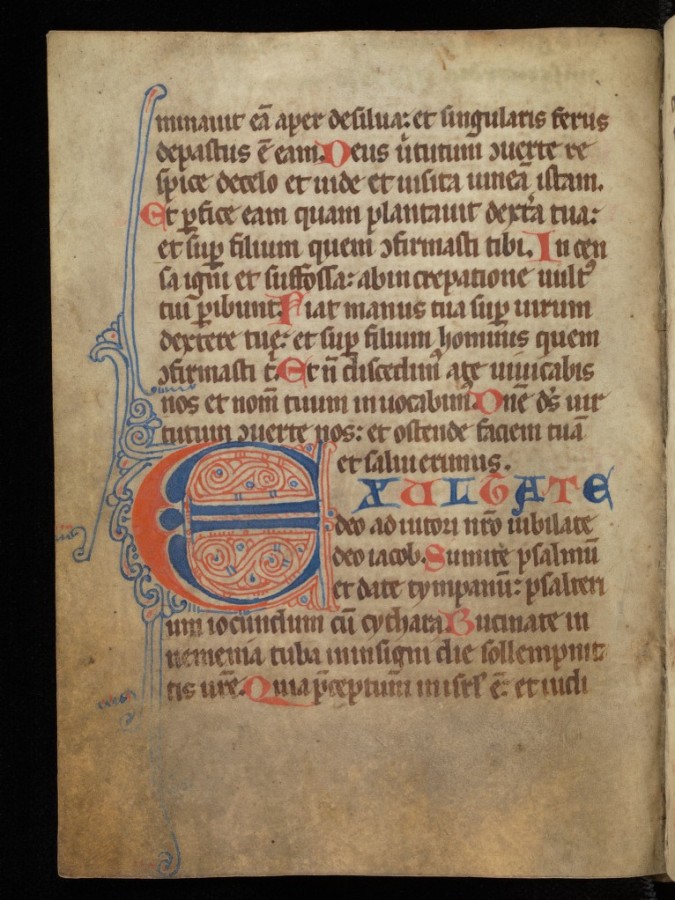 minauit eā aper desilua: et singularis ferus
depastus ē eam. Deus ũtutum ↄuerte re
spice decelo et uide et uisita uineā istam.
Et ꝑfice eam quam plantauit dext̃a tua:
et sup̱ filium quem ↄfirmasti tibi. In cen
sa igni et suffossa: abincrepatione uult᷒
tui ꝑibunt. Fiat manus tua sup̱ uirum
dextere tuę: et sup̱ filium hominis quem
ↄfirmasti t̃. Et ñ discedim᷒ ate uiuicabis
nos et nom̃ tuum inuocabim᷒. Dñe ds̄ uir
tutum ↄuerte nos: et ostende faciem tuā
et saluierimus.
EXULTATE
deo adiutori nr̃o iubilate
deo iacob. Sumite psalmū
et date tympanū: psalteri
um iocundum cū cythara. Bucinate in
nemenia tuba ininsigni die sollempnit
tis ur̃e. Quia p̄ceptum inisrł ē: et iudi